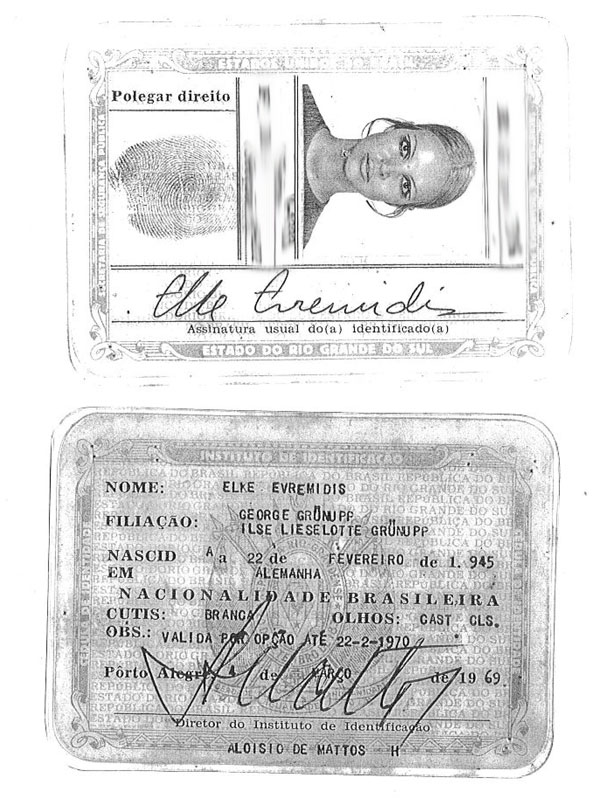 ESTADOS UNIDOS DO BRASIL
Polegar direito
Elke Evremidis
Assinatura usual do(a) identificado(a)
ESTADO DO RIO GRANDE DO SUL
INSTITUTO DE IDENTIFICAÇÃO
NOME: ELKE EVREMIDIS
FILIAÇÃO: GEORGE GRÜNUPP
ILSE LIESELOTTE GRÜNUPP
NASCID A a 22 de FEVEREIRO de 1. 945
EM ALEMANHA
NACIONALIDADE BRASILEIRA
CUTIS: BRANCA OLHOS: CAST CLS.
OBS.: VALIDA POR OPÇÃO ATÉ 22-2-1970
Pôrto Alegre, 4 de MARÇO de 19 69.
Diretor do Instituto de Identificação
ALOISIO DE MATTOS H